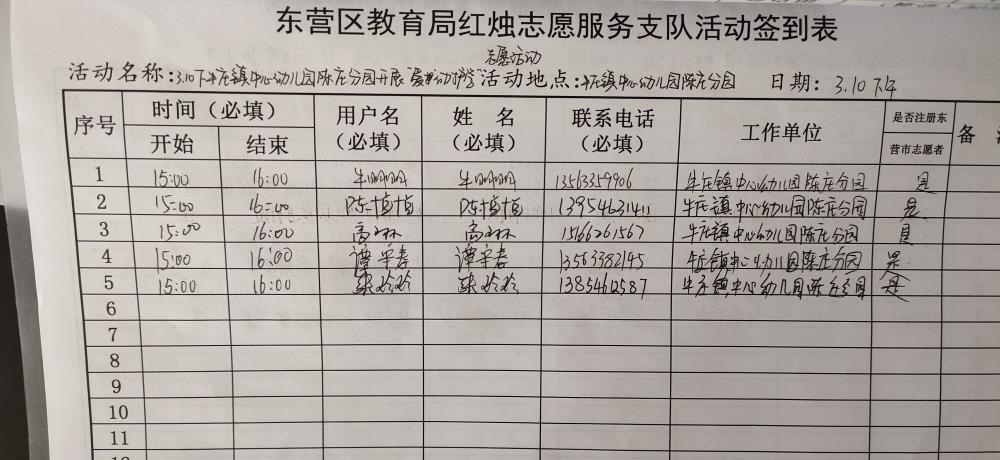 东营区教育局红烛志愿服务支队活动签到表
志愿活动
活动名称:3.10下午牛庄镇中心幼儿园陈庄分园开展 活动地点:牛庄镇中心幼儿园陈庄分园 日期: 3.10下午
序号 时间(必填) 用户名(必填) 姓 名(必填) 联系电话(必填) 工作单位 是否注册东营市志愿者 备
开始 结束
1 15:00 16:00 牛明明 牛明明 13563359906 牛庄镇中心幼儿园陈庄分园 是
2 15:00 16:00 陈植植 陈植植 13954631411 牛庄镇中心幼儿园陈庄分园 是
3 15:00 16:00 高 高 15166261567 牛庄镇中心幼儿园陈庄分园 是
4 15:00 16:00 谭平春 谭平春 13563382145 牛庄镇中心幼儿园陈庄分园 是
5 15:00 16:00 玲玲 玲玲 13854612587 牛庄镇中心幼儿园陈庄分园 是
6
7
8
9
10
11